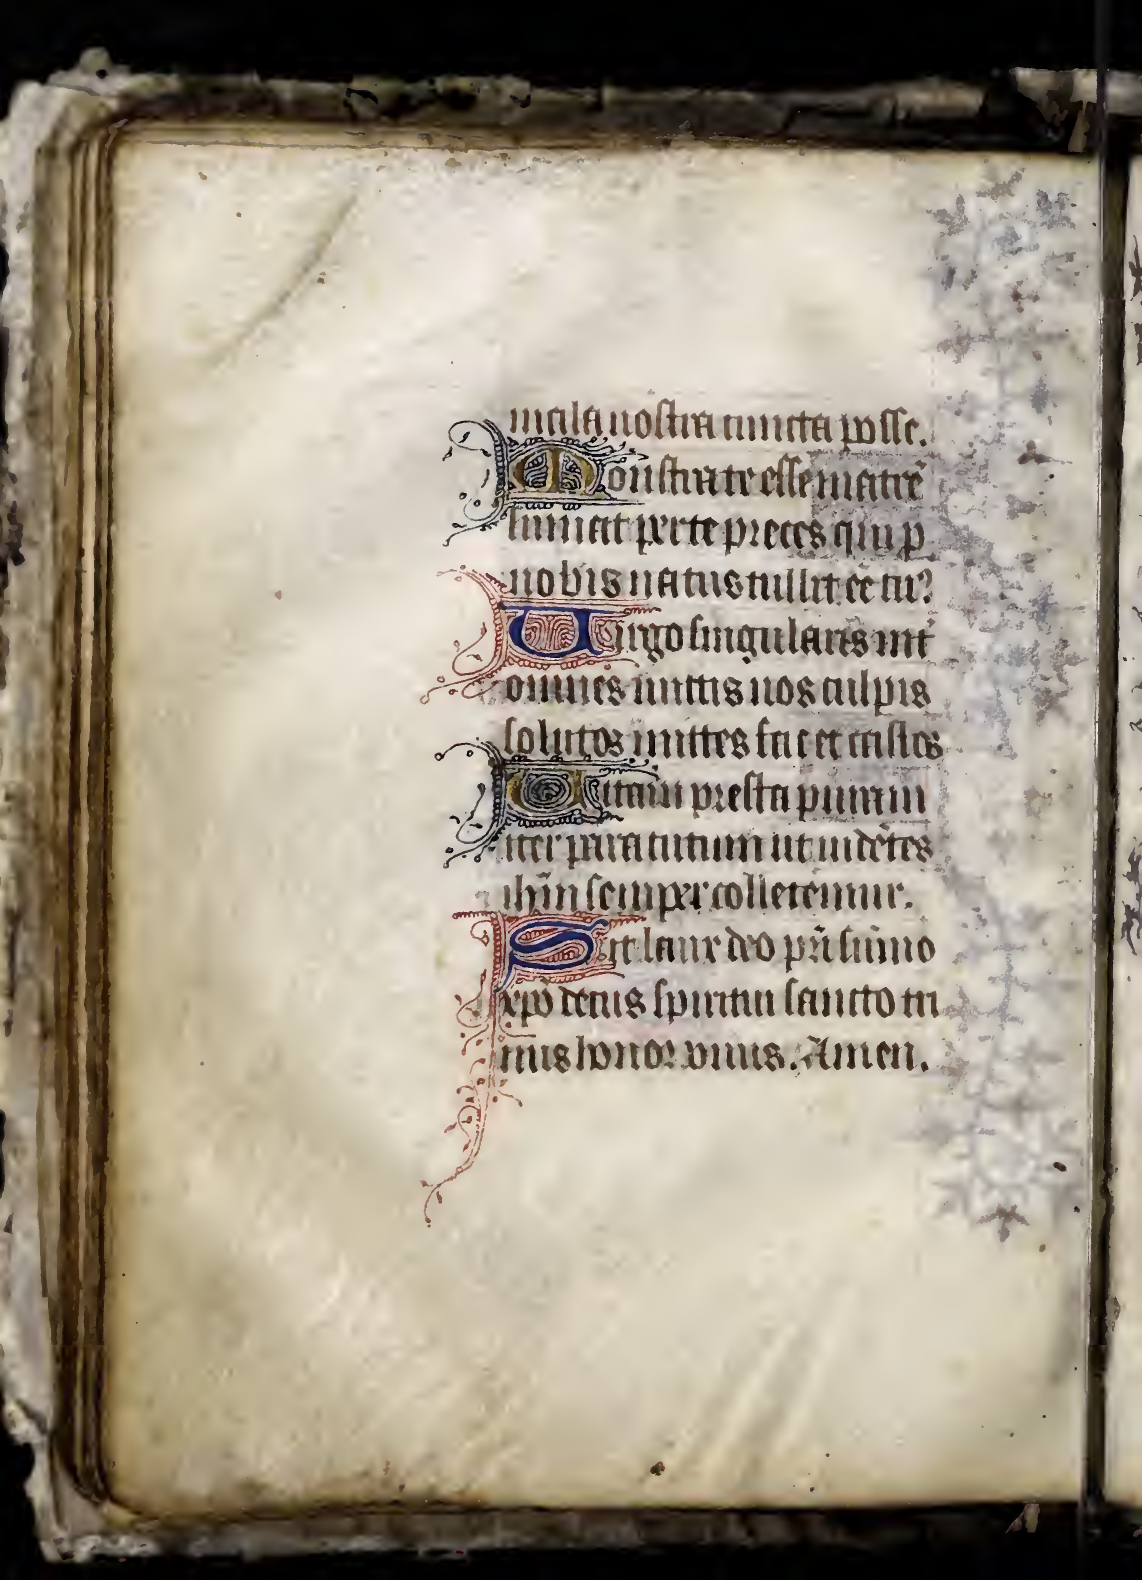 mala nostra cuncta posse.
Monstra te esse matrē
sumat per te preces qui p
nobis natus tulit eē tu?
Uirgo singularis int̄
omnes mittis nos culpis
solutos mittes fac et castos
Uitam presta puram
iter para tutum ut uidētes
ihm̄ semper colletemur.
Sit laux deo pri̅ sūmo
xpō decus spiritui sancto tri
nus honor vnus. Amen.